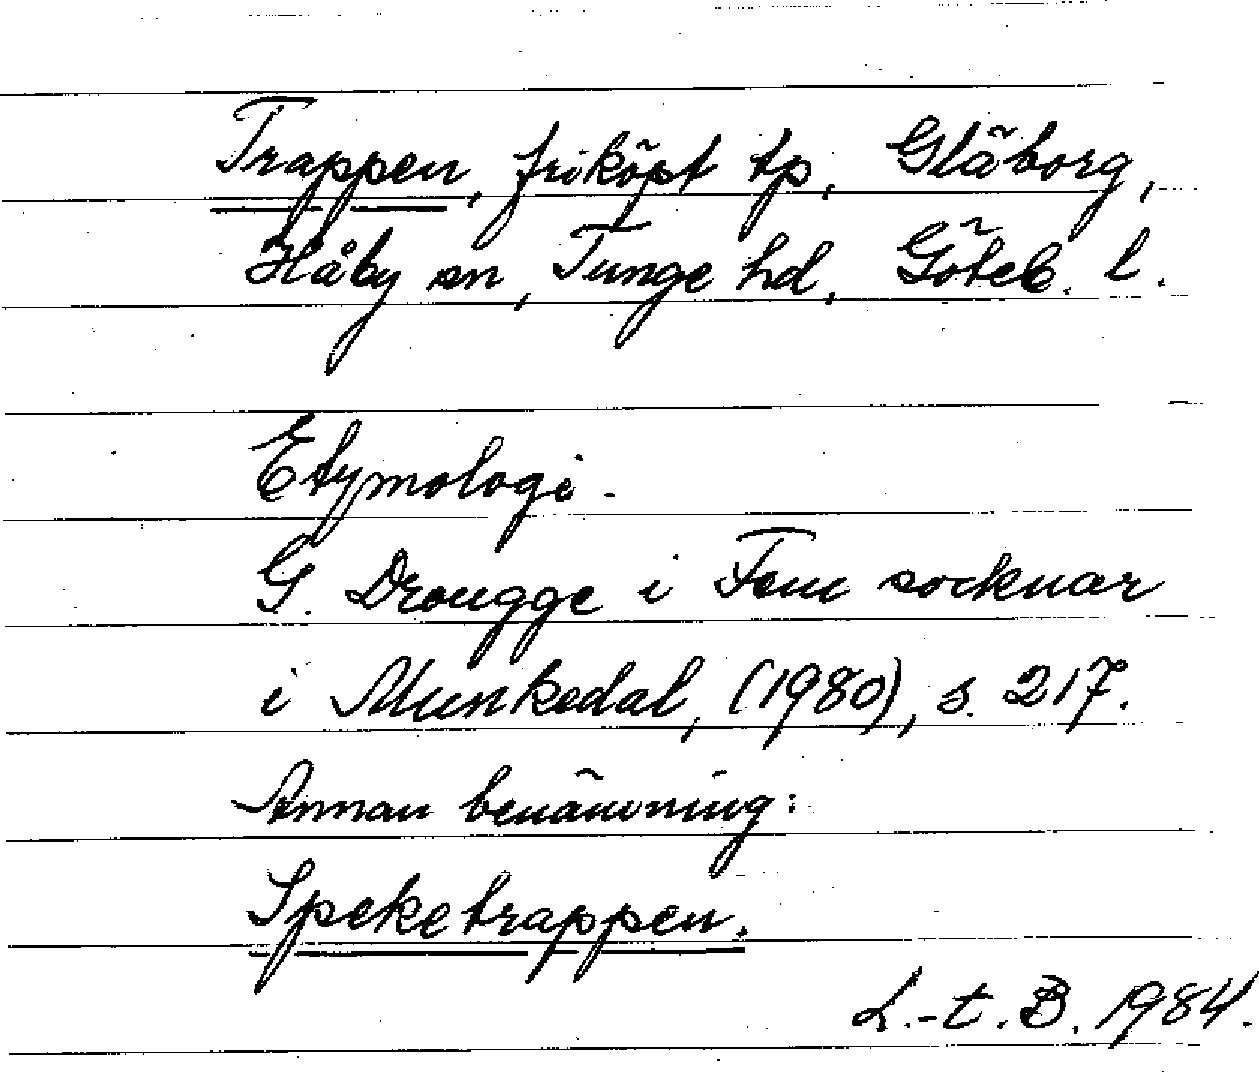 Trappen, friköpt tp, Gläborg,
Håby sn, Tunge hd, Göteb. l.
Etymologi.
G. Drougge i Fem socknar
i Munkedal, (1980), s. 217.
Annan benämning:
Speketrappen.
L.-t. B. 1984.